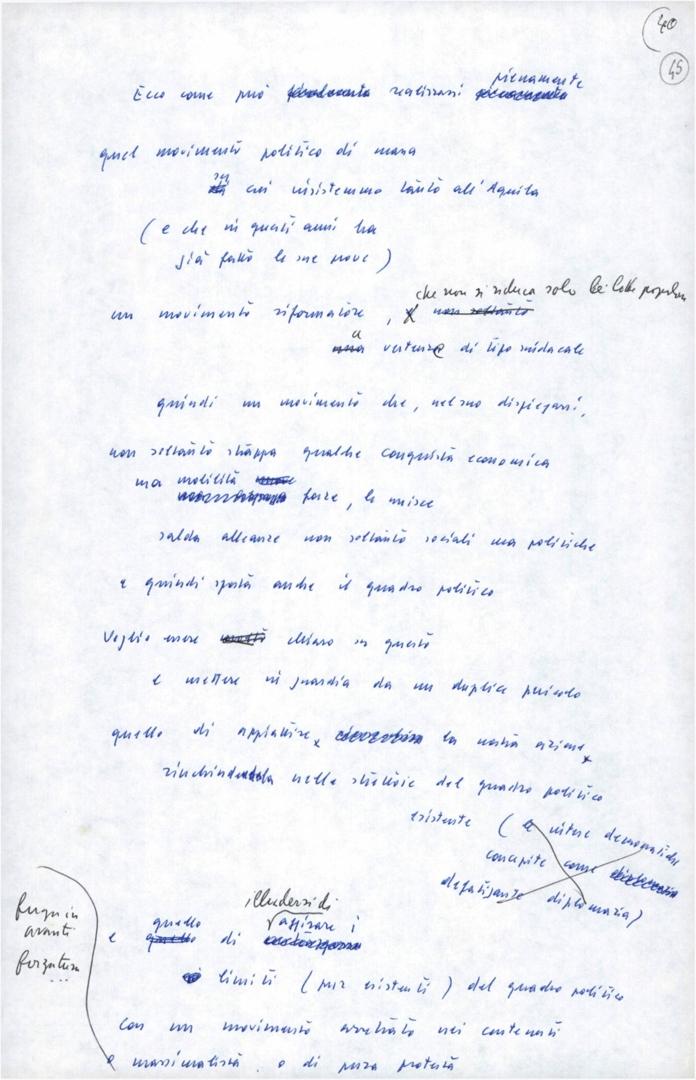 40
45
pienamente
Ecco come può realizzarsi
quel movimento politico di massa
su cui insistemmo tanto all'Aquila
(e che in questi anni ha
già fatto le sue prove)
che non si riduca solo le lotte popolari
un movimento riformatore, non soltanto
a vertenze di tipo sindacale
quindi un movimento che, nel suo dispiegarsi,
non soltanto strappa qualche conquista economica
ma mobilita
forze, le unisce
salda alleanze non soltanto sociali ma politiche
e quindi sposta anche il quadro politico
Voglio essere chiaro su questo
e mettere in guardia da un duplice pericolo
quello di appiattire la nostra azione
rinchiudendola nelle strettoie del quadro politico
esistente (le intese democratiche
concepite come
defatigante diplomazia)
illudersi di
quello aggirare i
e quello di
limiti (pur esistenti) del quadro politico
con un movimento arretrato nei contenuti
e massimalista o di pura protesta
fuga in
avanti
forzatura
...